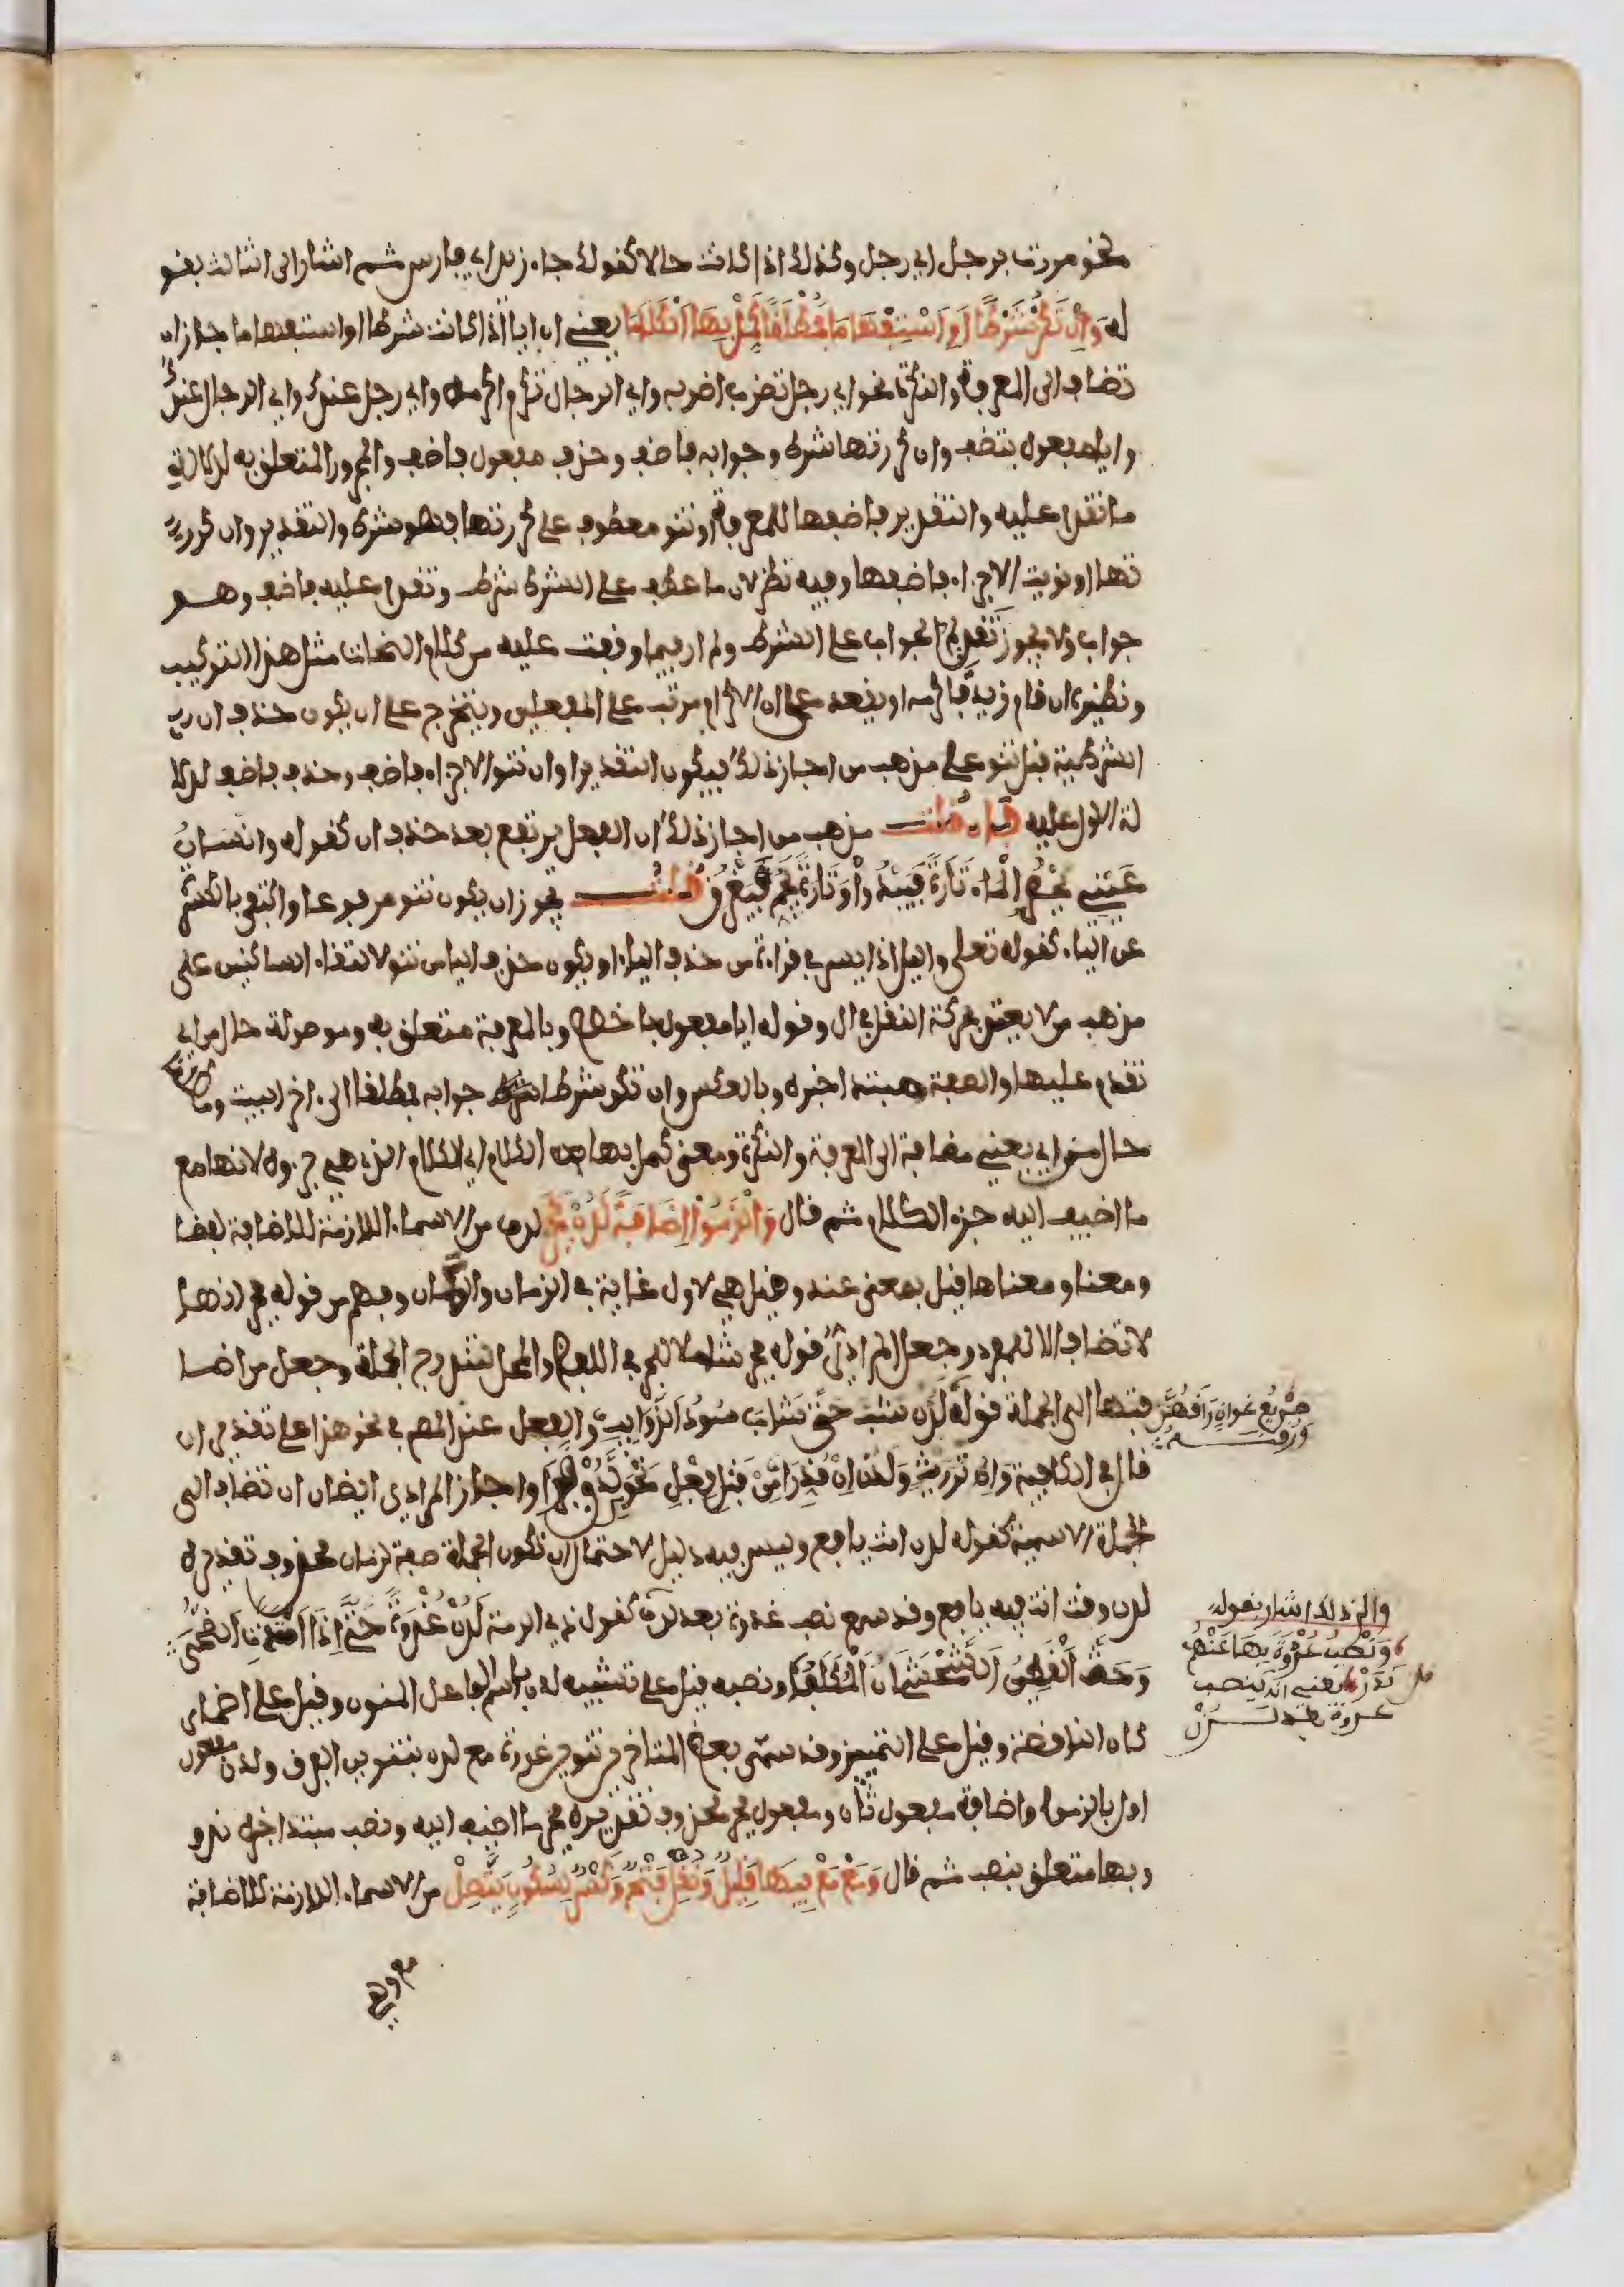 نحو مررت برجل اي رجل وكذلك اذا كانت حالا كقولك جاء زيد اي فارس ثم اشار الى الثالث بقو
له وَإِنْ تَكُنْ شَرْطًا أَوِ اسْتِفْهَامَا فَمُطْلَقًا كَمِّلْ بِهَا الْكَلَامَا يعني ان ايا اذا كانت شرطا او استفهاما جاز ان
تضاف الى المعرفة والنكرة نحو اي رجل تضرب اضربه واي الرجال تكرم اكرمه واي رجل عندك واي الرجال عندك
وايا مفعول بتضف وان كررتها شرط وجوابه فاضف وحذف مفعول فاضف والمجرور المتعلق به لدلالة
ما تقدم عليه والتقدير فاضفها للمعرفة او تنو معطوف على كررتها فهو شرط والتقدير وان كرر
تها او نويت الاجزاء فاضفها وفيه نظر لان ما عطف على الشرط شرط وتقدم عليه فاضف وهو
جواب ولا يجوز تقديم الجواب على الشرط ولم ار فيما وقفت عليه من كلام النحات مثل هذا التركيب
ونظيره ان قام زيد فاكرمه او يقعد على ان الاكرام مرتب على الفعلين ويتخرج على ان يكون حذف ان
الشرطية قبل تنو على مذهب من اجاز ذلك فيكون التقدير او ان تنو الاجزاء فاضف وحذف فاضف لدلا
لة الاول عليه فإن قلت مذهب من اجاز ذلك ان الفعل يرتفع بعد حذف ان كقوله وانسان
عيني يحسر الماء تارة فيبدو وتارة يجم فيغرق قلت يجوز ان يكون تنو مرفوعا واكتفى بالكسرة
عن الياء كقوله تعلى واليل اذا يسر في قراءة من حذف الياء او يكون حذف الياء من تنو لالتقاء الساكنين على
مذهب من لا يعتد بحركة النقل في ال وقوله ايا مفعول باخصص وبالمعرفة متعلق به وموصولة حال من اي
تقدم عليها والصفة مبتدا خبره وبالعكس وان تكن شرطا شرط جوابه فمطلقا الى اخر البيت ومطلقا
حال من اي يعني مضافة الى المعرفة والنكرة ومعنى كمل بها الكلام اي الكلام الذي هي جزءه لانها مع
ما اضيف اليه جزء الكلام ثم قال وَأَلْزَمُوا إِضَافَةً لَدُنْ فَجَرْ لدن من الاسماء اللازمة للاضافة لفظا
ومعنا ومعناها قيل بمعنى عند وقيل هي لاول غاية في الزمان والمكان وفهم من قوله فجر انها
لا تضاف الا للمفرد وجعل المرادي قوله فجر شاملا للجر في اللفظ والمحل لتندرج الجملة وجعل من اضا
فتها الى الجملة قوله لدن شب حتى شاب سود الذوائب والفعل عند المص في نحو هذا على تقدير ان
قال في الكافية وان ولدن ان قدر من قبل فعل نحو واجاز المرادي ايضا ان تضاف الى
الجملة الاسمية كقوله لدن انت يافع وليس فيه دليل لاحتمال ان تكون الجملة صفة لزمان محذوف تقديره
لدن وقت انت فيه يافع وقد سمع نصب غدوة بعد لدن كقول ذي الرمة لدن غدوة حتى اذا امتدت الضحى
وحث القطين الشحشحان المكلف ونصبه قيل على تشبيه لدن باسم الفاعل المنون وقيل على اضمار
كان الناقصة وقيل على التمييز وقد سمى بعض المتاخرين تنوين غدوة مع لدن بتنوين الفرق ولدن مفعول
اول بالزموا واضافة مفعول ثان ومفعول فجر محذوف تقديره فجر ما اضيف اليه ونصب مبتدا خبره ندر و
وبها متعلق بنصب ثم قال وَمَعَ مَعْ فِيهَا قَلِيلٌ وَنُقِلْ فَتْحٌ وَكَسْرٌ لِسُكُونٍ يَتَّصِلْ من الاسماء اللازمة للاضافة
مع وفي
صريع غوان راقهن
ورقنه
والى ذلك اشار بقوله
وَنَصْبُ غُدْوَةٍ بِهَا عَنْهُم
نَدَرْ يعني انه ينصب
غدوة بعد لدن